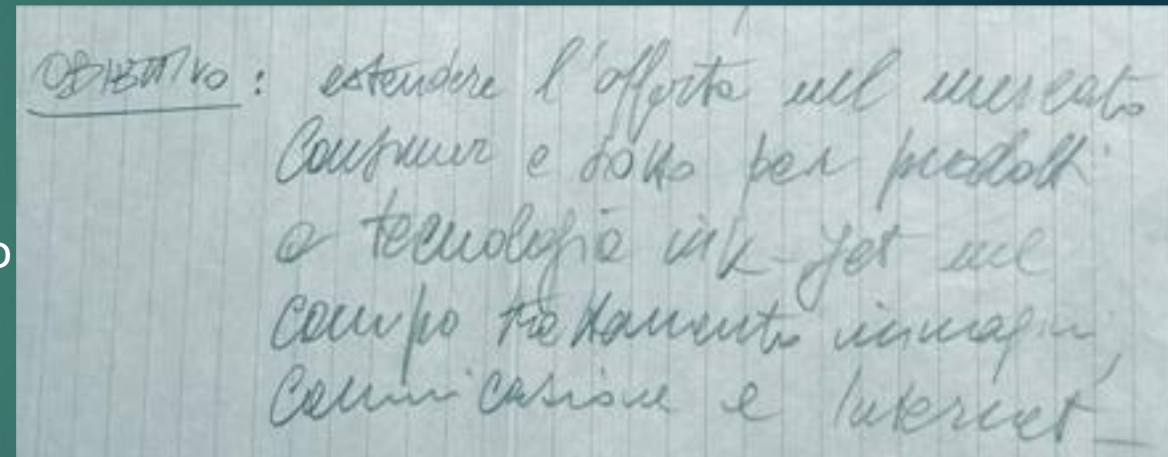 OBIETTIVO: estendere l'offerta nel mercato
Consumer e SOHO per prodotti
o
a tecnologia ink-jet nel
campo trattamento immagini,
Comunicazione e Internet_